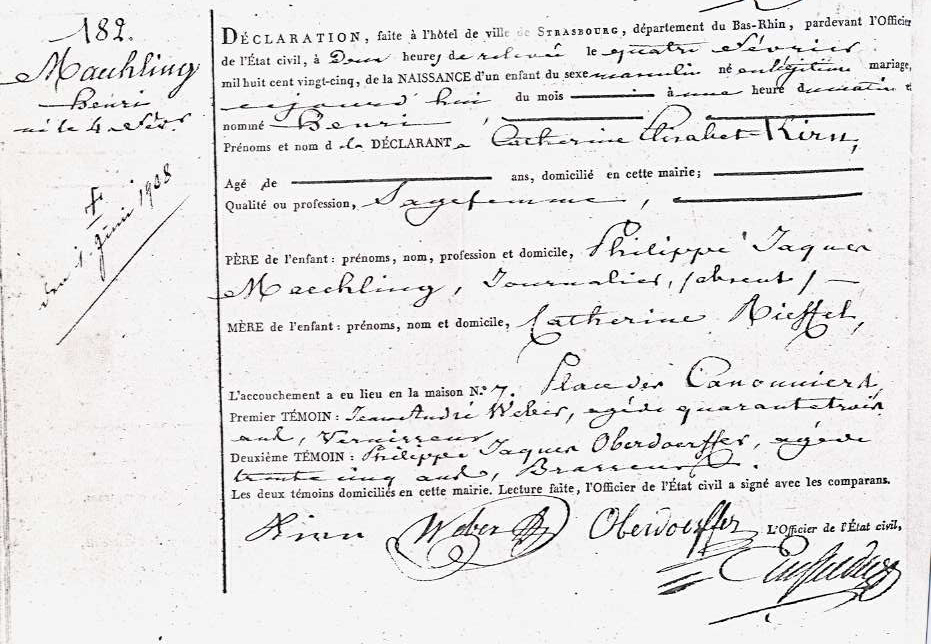 182.
Maechling
Henri
né le 4 Févr.
†
den 1. Juni 1908
DÉCLARATION, faite à l'hôtel de ville de STRASBOURG, département du Bas-Rhin, pardevant l'Officier
de l'État civil, à Deux heures de relevée le quatre Février
mil huit cent vingt-cinq, de la NAISSANCE d'un enfant du sexe masculin né en légitime mariage,
cejourd'hui du mois à une heure du matin et
nommé Henri,
Prénoms et nom d la DÉCLARANTe Catherine Elisabet Kirn,
Agé de ans, domicilié en cette mairie;
Qualité ou profession, Sagefemme,
PÈRE de l'enfant: prénoms, nom, profession et domicile, Philippe Jaques
Maechling, Journalier, (absent) —
MÈRE de l'enfant: prénoms, nom et domicile, Catherine Rieffel,
L'accouchement a eu lieu en la maison N.° 7. Place des Canonniers,
Premier TÉMOIN: Jean André Weber, agé de quarante trois
ans, Vernisseur
Deuxième TÉMOIN: Philippe Jaques Oberdoerffer, agé de
trente cinq ans, Brasseur.
Les deux témoins domiciliés en cette mairie. Lecture faite, l'Officier de l'État civil a signé avec les comparans.
Kirn Weber Oberdoerffer L'Officier de l'État civil,